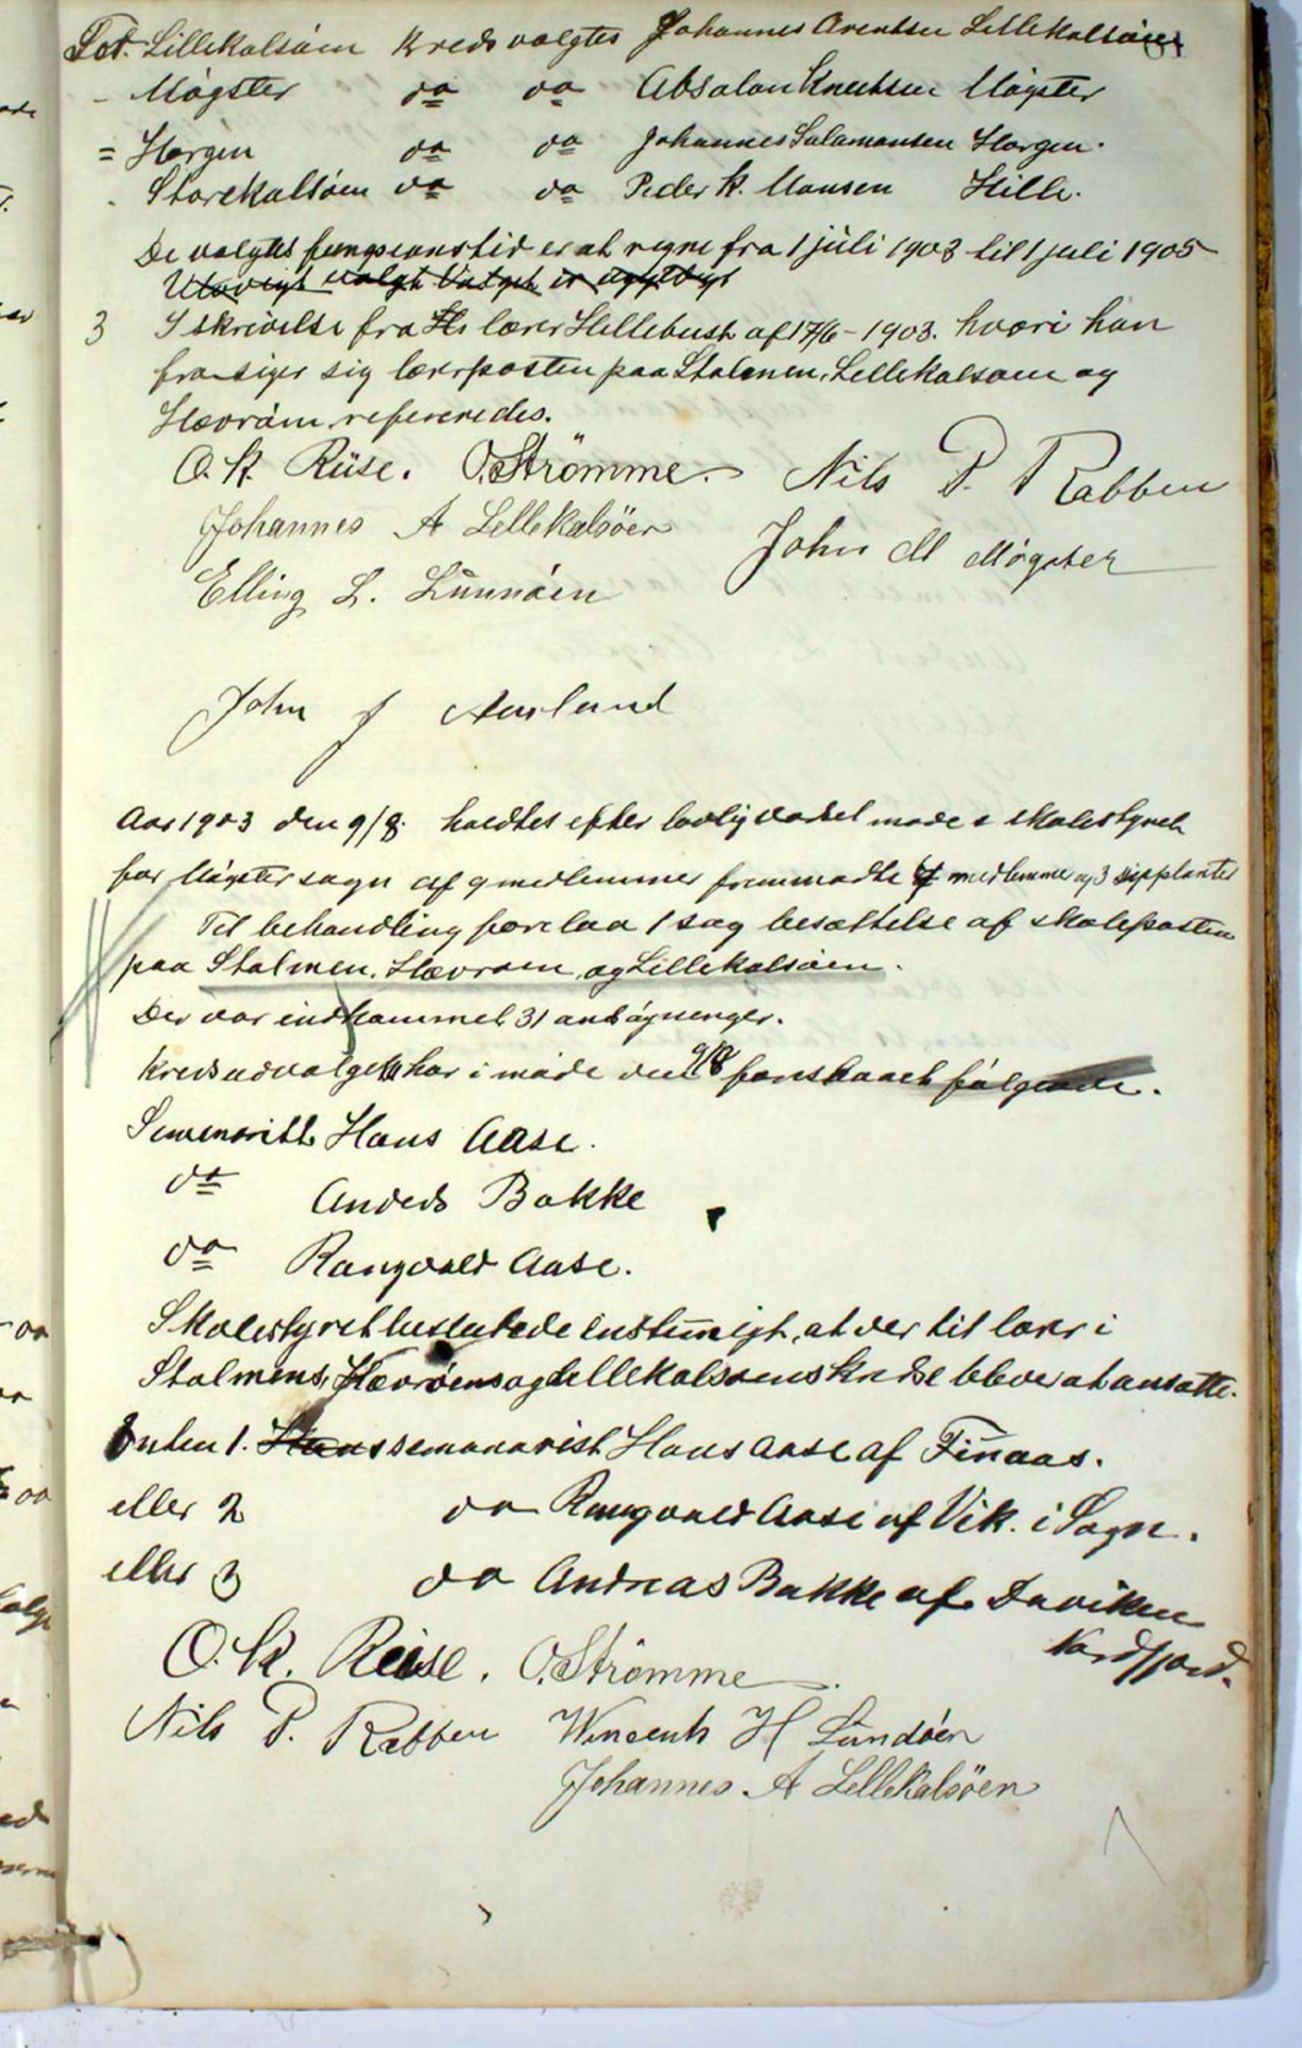 For Lillekalsøen Kreds valgtes Johannes Arentsen Lillekalsøen
- Møgster do do Absalon Knutsen Møgster
= Horgen do do Johannes Salamonsen Horgen.
- Storekalsøen do do Peder K. Monsen Hille.
De valgtes fungsionstid er at regne fra 1 juli 1903 til 1 juli 1905
valgt Valget er ugyldigt
3 I skrivelse fra lærer Hillebust af 17/6 - 1903. hvori han
frasiger sig lærerposten paa Stolmen, Lillekalsøen og
Hevrøen refereredes.
O. K. Riise. O. Strömme. Nils P. Rabben
Johannes A Lillekalsöen John M Møgster
Elling L. Lunnøen
John J Aurland
Aar 1903 den 9/8. holdtes efter lovlig varsel møde i skolestyret
for Møgster sogn af 9 medlemmer fremmødte medlemme og 3 supplanter
Til behandling forelaa 1 sag besættelse af skoleposten
paa Stolmen, Hevrøen og Lillekalsøen.
Der var indkommet 31 ansøgninger.
Kredsudvalget har i møde den 9/8 foreslaaet følgende.
Semenarist Hans Aase.
do Anders Bakke
do Rangvald Aase.
Skolestyret besluttede enstemigt, at der til lærer i
Stolmens, Hevrøens og Lillekalsøens Kredse bliver at ansætte.
Enten 1. Hans semenarist Hans Aase af Finnaas.
eller 2 do Rangvald Aase af Vik. i Sogn.
eller 3 do Andreas Bakke af Daviken
Nordfjord.
O. K. Reise. O. Strömme.
Nils P. Rabben Wincents H Lundøen
Johannes A Lillekalsöen